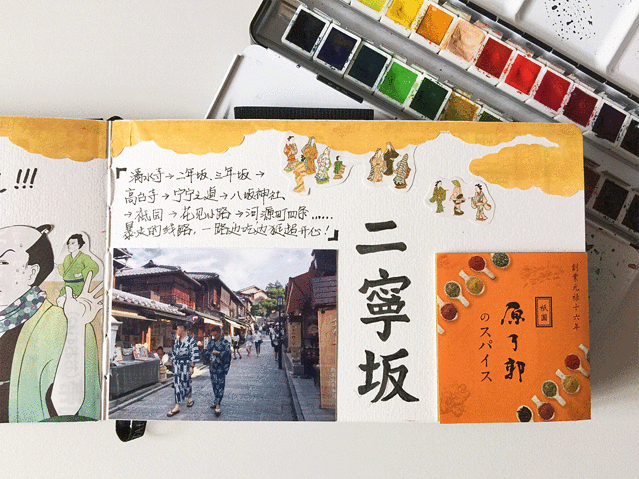 !!!
「清水寺→二年坂、三年坂→
高台寺→宁宁之道→八坂神社、
→祇园→花见小路→河源町四条……
暴走的线路，一路边吃边逛超开心！」
二寧坂
創業元禄十六年
祇園
原了郭
のスパイス